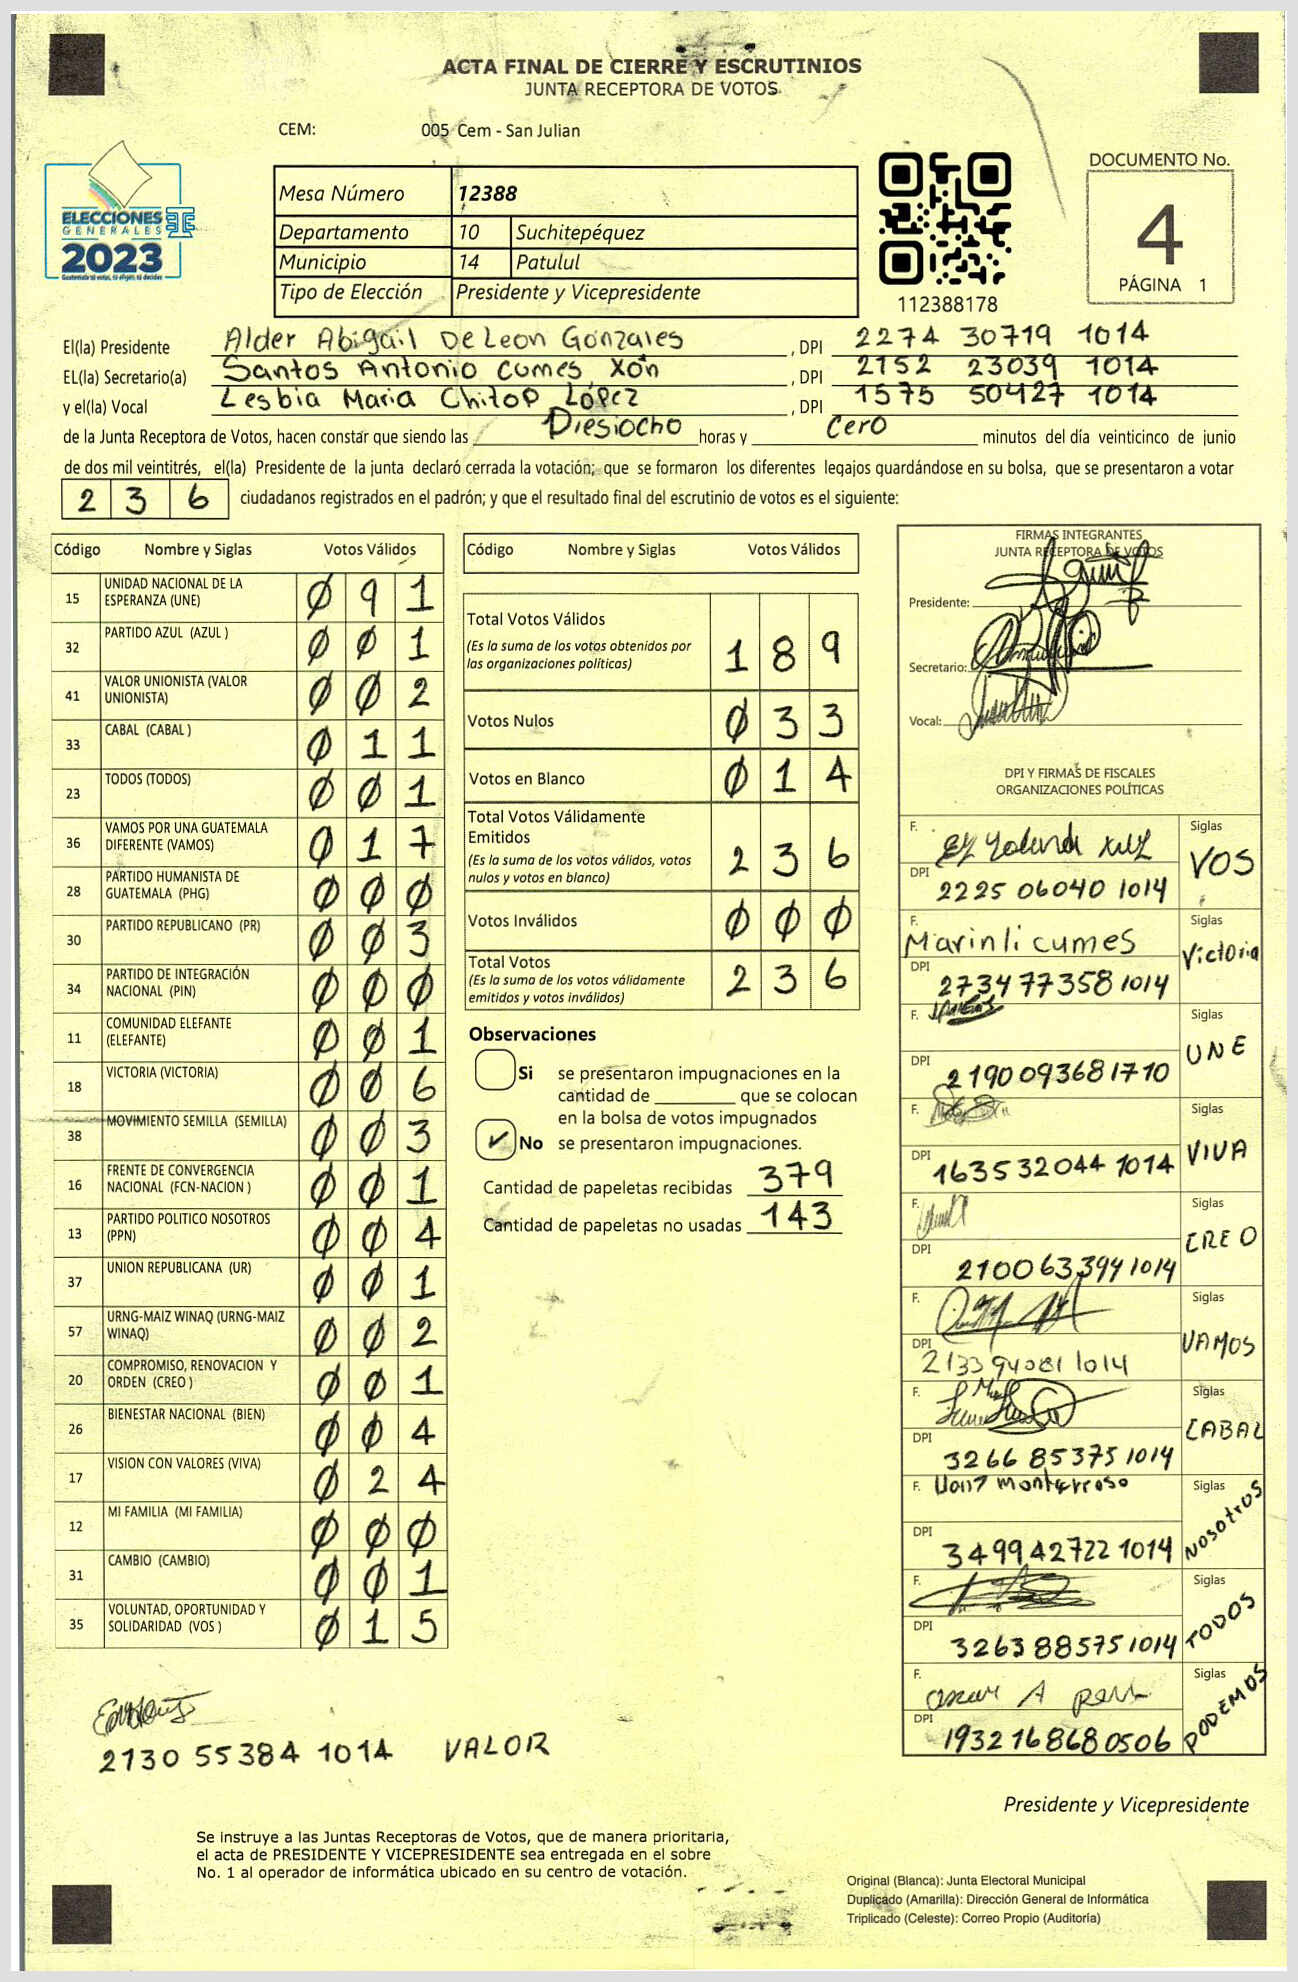 ACTA FINAL DE CIERRE Y ESCRUTINIOS
JUNTA RECEPTORA DE VOTOS
CEM: 005 Cem - San Julian
ELECCIONES
GENERALES
2023
Mesa Número 12388
Departamento 10 Suchitepéquez
Municipio 14 Patulul
Tipo de Elección Presidente y Vicepresidente
112388178
DOCUMENTO No.
4
PÁGINA 1
El(la) Presidente Alder Abigail De Leon Gonzales , DPI 2274 30719 1014
EL(la) Secretario(a) Santos Antonio Cumes Xón , DPI 2152 23039 1014
y el(la) Vocal Lesbia Maria Chitop López , DPI 1575 50427 1014
de la Junta Receptora de Votos, hacen constar que siendo las Diesiocho horas y Cero minutos del día veinticinco de junio
de dos mil veintitrés, el(la) Presidente de la junta declaró cerrada la votación; que se formaron los diferentes legajos guardándose en su bolsa, que se presentaron a votar
2 3 6 ciudadanos registrados en el padrón; y que el resultado final del escrutinio de votos es el siguiente:
Código Nombre y Siglas Votos Válidos
15 UNIDAD NACIONAL DE LA ESPERANZA (UNE) 0 9 1
32 PARTIDO AZUL (AZUL ) 0 0 1
41 VALOR UNIONISTA (VALOR UNIONISTA) 0 0 2
33 CABAL (CABAL ) 0 1 1
23 TODOS (TODOS) 0 0 1
36 VAMOS POR UNA GUATEMALA DIFERENTE (VAMOS) 0 1 7
28 PARTIDO HUMANISTA DE GUATEMALA (PHG) 0 0 0
30 PARTIDO REPUBLICANO (PR) 0 0 3
34 PARTIDO DE INTEGRACIÓN NACIONAL (PIN) 0 0 0
11 COMUNIDAD ELEFANTE (ELEFANTE) 0 0 1
18 VICTORIA (VICTORIA) 0 0 6
38 MOVIMIENTO SEMILLA (SEMILLA) 0 0 3
16 FRENTE DE CONVERGENCIA NACIONAL (FCN-NACION ) 0 0 1
13 PARTIDO POLITICO NOSOTROS (PPN) 0 0 4
37 UNION REPUBLICANA (UR) 0 0 1
57 URNG-MAIZ WINAQ (URNG-MAIZ WINAQ) 0 0 2
20 COMPROMISO, RENOVACION Y ORDEN (CREO ) 0 0 1
26 BIENESTAR NACIONAL (BIEN) 0 0 4
17 VISION CON VALORES (VIVA) 0 2 4
12 MI FAMILIA (MI FAMILIA) 0 0 0
31 CAMBIO (CAMBIO) 0 0 1
35 VOLUNTAD, OPORTUNIDAD Y SOLIDARIDAD (VOS ) 0 1 5
2130 55384 1014 VALOR
Código Nombre y Siglas Votos Válidos
Total Votos Válidos 1 8 9
(Es la suma de los votos obtenidos por
las organizaciones políticas)
Votos Nulos 0 3 3
Votos en Blanco 0 1 4
Total Votos Válidamente
Emitidos 2 3 6
(Es la suma de los votos válidos, votos
nulos y votos en blanco)
Votos Inválidos 0 0 0
Total Votos 2 3 6
(Es la suma de los votos válidamente
emitidos y votos inválidos)
Observaciones
Si se presentaron impugnaciones en la
cantidad de ________ que se colocan
en la bolsa de votos impugnados
✓ No se presentaron impugnaciones.
Cantidad de papeletas recibidas 379
Cantidad de papeletas no usadas 143
FIRMAS INTEGRANTES
JUNTA RECEPTORA DE VOTOS
Presidente:
Secretario:
Vocal:
DPI Y FIRMAS DE FISCALES
ORGANIZACIONES POLÍTICAS
F. Siglas VOS
DPI 2225 06040 1014
F. Marinli cumes Siglas Victoria
DPI 2734 77358 1014
F. Siglas UNE
DPI 2190093681710
F. Siglas VIVA
DPI 163532044 1014
F. Siglas CREO
DPI 210063394 1014
F. Siglas VAMOS
DPI 2133 94081 1014
F. Siglas CABAL
DPI 3266 85375 1014
F. Monterroso Siglas Nosotros
DPI 349942722 1014
F. Siglas TODOS
DPI 3263 88575 1014
F. oscar A Siglas PODEMOS
DPI 1932 16868 0506
Presidente y Vicepresidente
Se instruye a las Juntas Receptoras de Votos, que de manera prioritaria,
el acta de PRESIDENTE Y VICEPRESIDENTE sea entregada en el sobre
No. 1 al operador de informática ubicado en su centro de votación.
Original (Blanca): Junta Electoral Municipal
Duplicado (Amarilla): Dirección General de Informática
Triplicado (Celeste): Correo Propio (Auditoría)